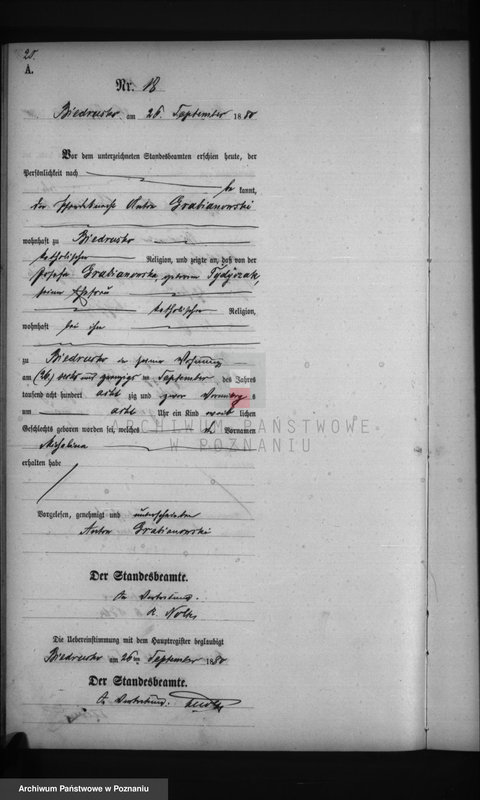 25.
A.
Nr. 18
Biedrusko am 26. September 1880
Vor dem unterzeichneten Standesbeamten erschien heute, der
Persönlichkeit nach
be kannt,
der Anton Grabianowski
wohnhaft zu Biedrusko
katholischer Religion, und zeigte an, daß von der
Josefa Grabianowska, geborene
seiner Ehefrau
katholischer Religion,
wohnhaft bei ihm
zu Biedrusko in seiner Wohnung
am (26.) sechs und zwanzigs ten September des Jahres
tausend acht hundert acht zig und zwar Vormittag s
um acht Uhr ein Kind weib lichen
Geschlechts geboren worden sei, welches Vornamen
Michalina
erhalten habe
Vorgelesen, genehmigt und unterschrieben
Anton Grabianowski
Der Standesbeamte.
In Vertretung.
Die Uebereinstimmung mit dem Hauptregister beglaubigt
Biedrusko am 26 ten September 1880
Der Standesbeamte.
In Vertretung.
ARCHIWUM PAŃSTWOWE
W POZNANIU
Archiwum Państwowe w Poznaniu